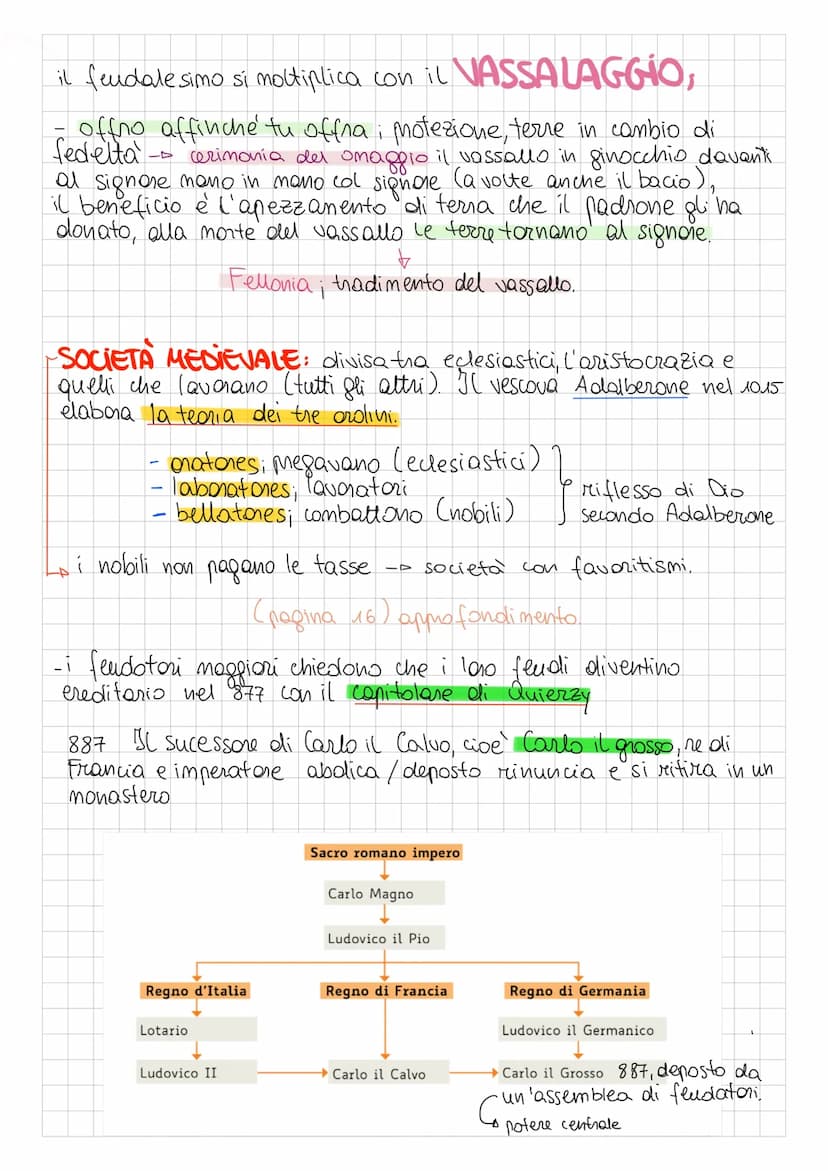 il feudalesimo si moltiplica con il VASSALAGGIO;
- offro affinché tu offra; protezione, terre in cambio di
fedeltà -> cerimonia del omaggio il vassallo in ginocchio davanti
al signore mano in mano col signore (a volte anche il bacio),
il beneficio è l'apezzamento di terra che il padrone gli ha
donato, alla morte del vassallo le terre tornano al signore.
Fellonia; tradimento del vassallo.
SOCIETÀ MEDIEVALE: divisa tra eclesiastici, l'aristocrazia e
quelli che lavorano (tutti gli altri). Il vescova Adalberone nel 1015
elabora la teoria dei tre ordini.
- oratores; pregavano (eclesiastici)
- laboratores; lavoratori
- bellatores; combattono (nobili)
riflesso di Dio
secondo Adalberone
i nobili non pagano le tasse -> società con favoritismi.
(pagina 16) approfondimento.
- i feudatori maggiori chiedono che i loro feudi diventino
ereditario nel 877 con il capitolare di Quierzy
887 Il sucessore di Carlo il Calvo, cioè Carlo il grosso, re di
Francia e imperatore abdica / deposto rinuncia e si ritira in un
monastero
Sacro romano impero
Carlo Magno
Ludovico il Pio
Regno d'Italia Regno di Francia Regno di Germania
Lotario Ludovico il Germanico
Ludovico II Carlo il Calvo Carlo il Grosso 887, deposto da
un'assemblea di feudatori.
potere centrale